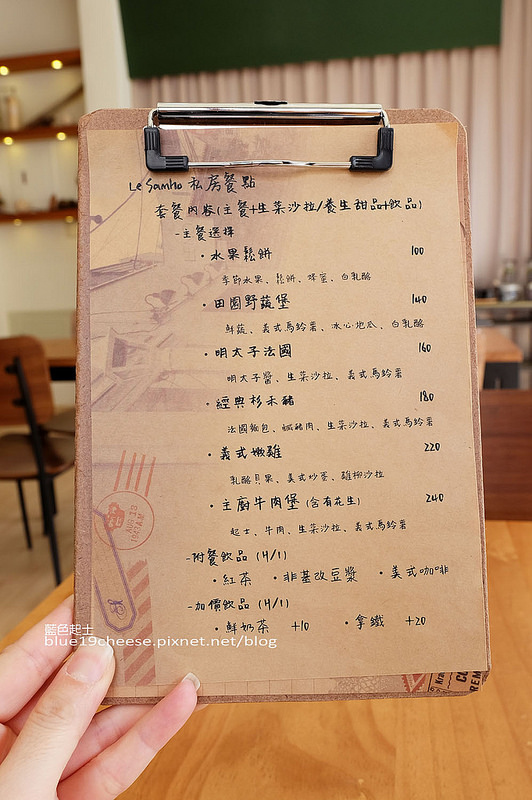 Le Samho 私房餐點
套餐內容(主餐+生菜沙拉/養生甜品+飲品)
-主餐選擇
・水果鬆餅 100
季節水果、鬆餅、蜂蜜、白乳酪
・田園野蔬堡 140
鮮蔬、義式馬鈴薯、冰心地瓜、白乳酪
・明太子法國 160
明太子醬、生菜沙拉、義式馬鈴薯
・經典杉禾豬 180
法國麵包、鹹豬肉、生菜沙拉、義式馬鈴薯
・義式嫩雞 220
乳酪貝果、美式炒蛋、雞柳沙拉
・主廚牛肉堡(含有花生) 240
起士、牛肉、生菜沙拉、義式馬鈴薯
-附餐飲品(H/I)
・紅茶 ・非基改豆漿 ・美式咖啡
-加價飲品(H/I)
・鮮奶茶 +10 ・拿鐵 +20
藍色起士
blue19cheese.pixnet.net/blog